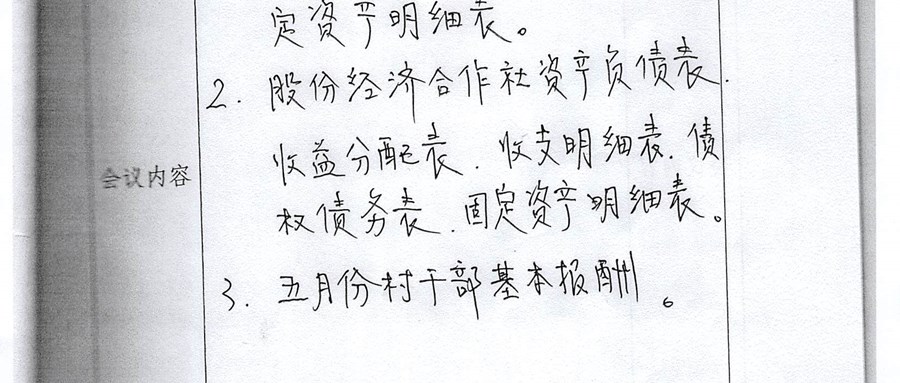 定资产明细表。
2. 股份经济合作社资产负债表.
收益分配表、收支明细表、债
会议内容
权债务表、固定资产明细表。
3. 五月份村干部基本报酬。